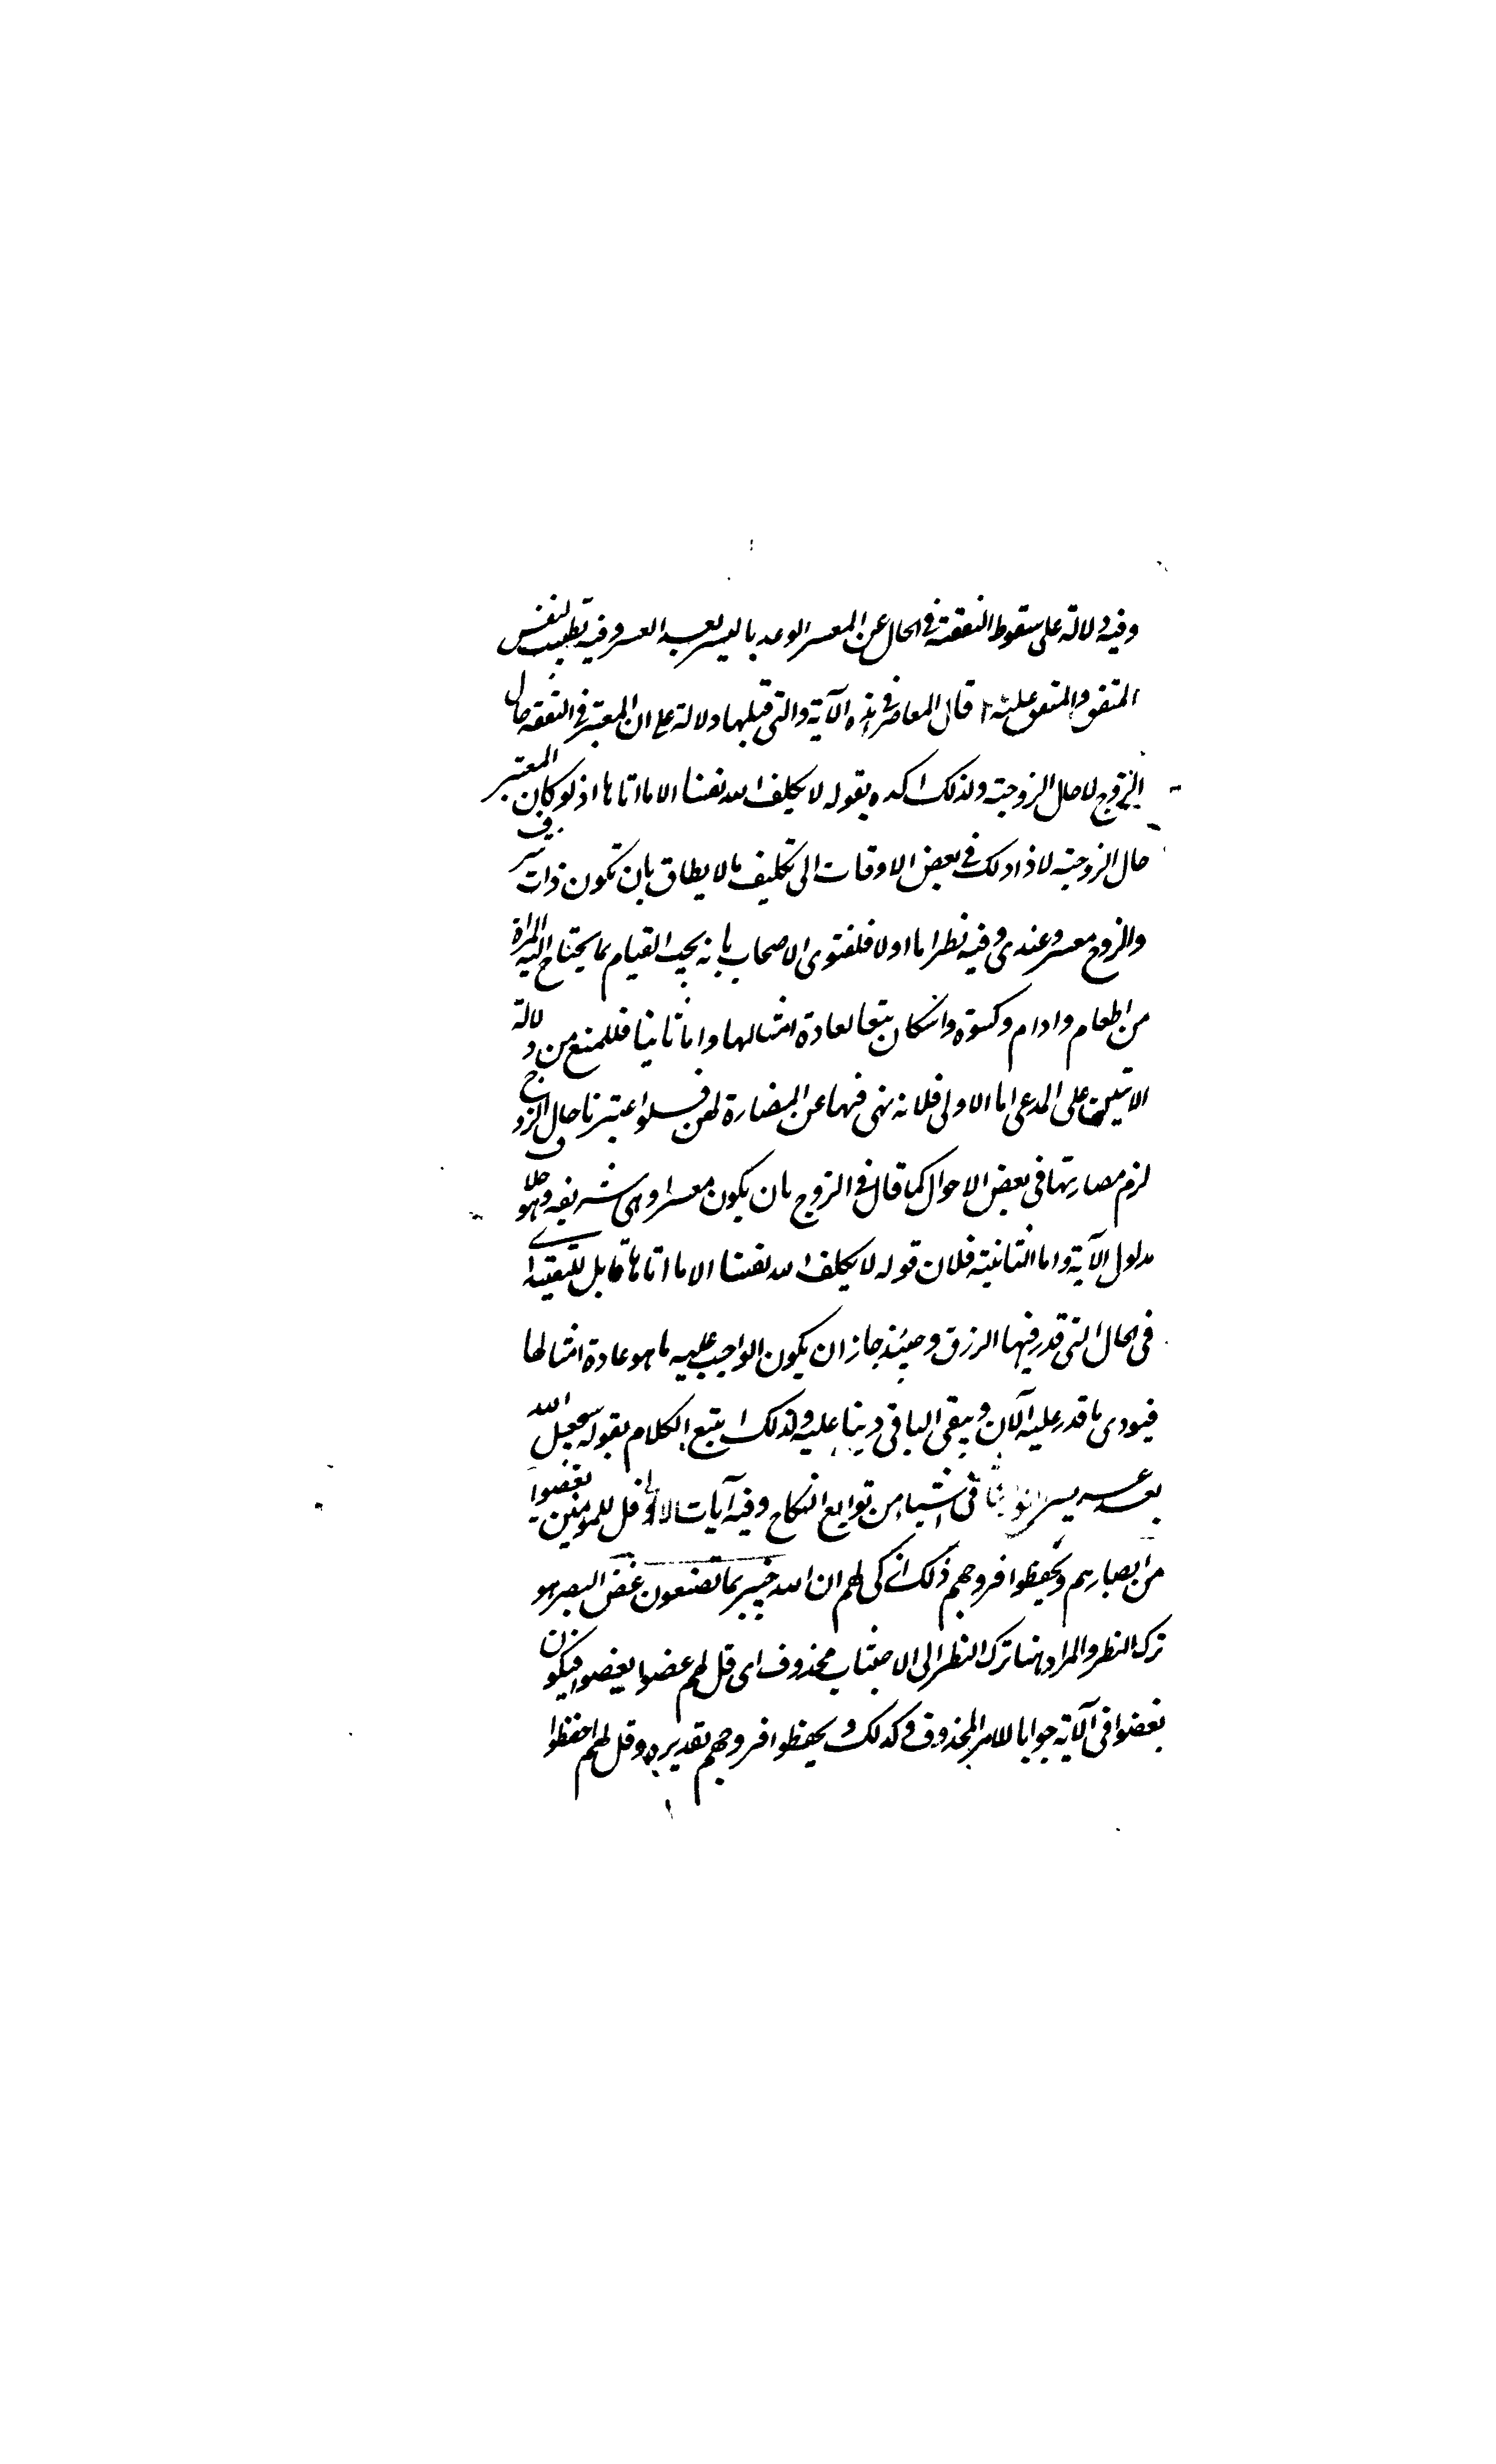 وفيه دلالة على سقوط النفقة في الحال عن المعسر الوعد باليسر بعد العسر وفيه تطييب لنفس
المنفق والمنفق عليه قال المعاصر في هذه الآية والتي قبلها دلالة على ان المعتبر في النفقة حال
الزوج لا حال الزوجية ولذلك اكده بقوله لا يكلف الله نفسا الا ما اتاها اذ لو كان المعتبر
حال الزوجية لاذا ذلك في بعض الاوقات الى تكليف ما لا يطاق بان تكون ذات شرف
والزوج معسر وعندي وفيه نظر اما اولا فلفتوى الاصحاب بانه يجب القيام بما يحتاج اليه المراة
من اطعام وادام وكسوة واسكان تبعا لعادة امثالها واما ثانيا فللمنع من دلالة
الايتين على المدعى اما الاولى فلانه نهى فيها عن المضارة لهن فلو اعتبرنا حال الزوج
لزم مضارتها في بعض الاحوال كما قال في الزوج بان يكون معسرا وهي شريفة وهو خلاف
مدلول الآية واما الثانية فلان قوله لا يكلف الله نفسا الا ما اتاها قابل للتقييد
في الحال التي قدر فيها الرزق وحينئذ جاز ان يكون الواجب عليه ما هو عادة امثالها
فيودى ما قدر عليه الآن ويبقى الباقي دينا عليه ولذلك اتبع الكلام بقوله سيجعل الله
بعد عسر يسرا في اشياء من توابع النكاح وفيه آيات الاولى قل للمومنين يغضوا
من ابصارهم ويحفظوا فروجهم ذلك ازكى لهم ان الله خبير بما تصنعون غض البصر هو
ترك النظر والمراد هنا ترك النظر الى الاجنبيات محذوف اى قل لهم غضوا يغضوا فيكون
يغضوا في الآية جوابا للامر المحذوف وكذلك ويحفظوا فروجهم تقديره وقل لهم احفظوا